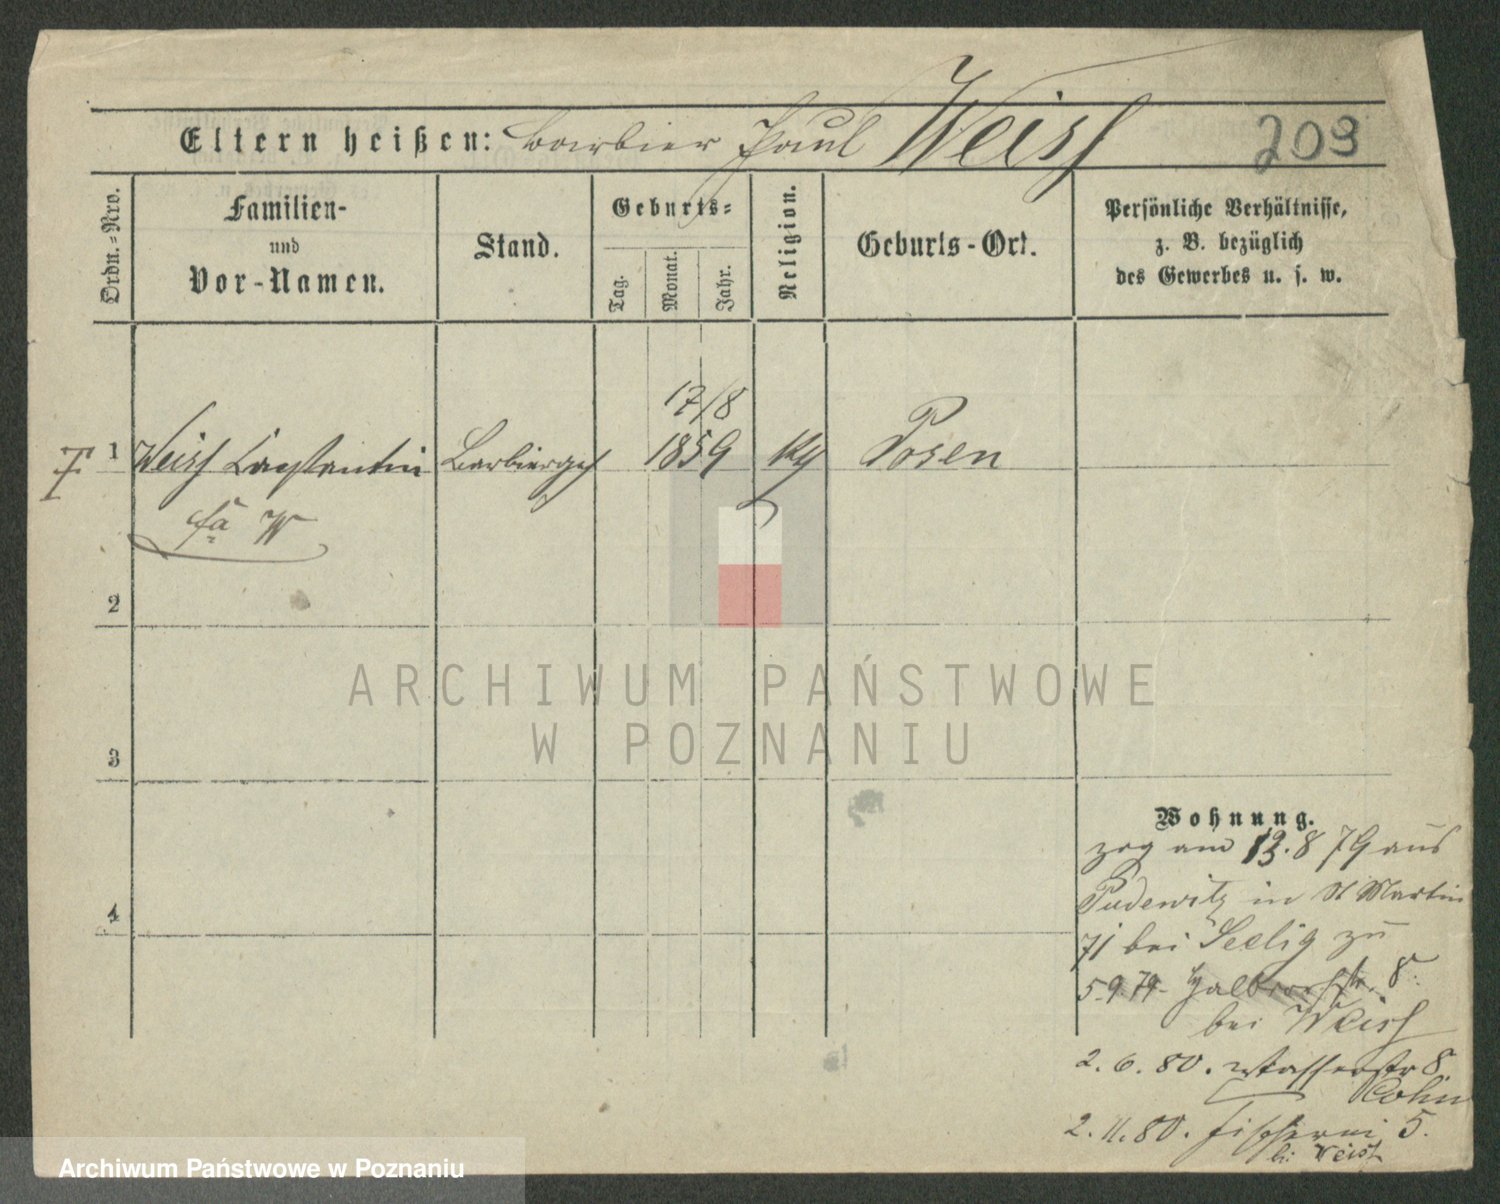 Eltern heißen: Barbier Paul Weiss 203
Ordn.-Nro.
Familien-
und
Vor-Namen.
Stand.
Geburts-
Tag.
Monat.
Jahr.
Religion.
Geburts-Ort.
Persönliche Verhältnisse,
z. B. bezüglich
des Gewerbes u. s. w.
17/8
1 Weiss Constantin Barbierge 1859 Posen
W
2
3
4
Wohnung.
zog am 8 79 aus
Pudewitz in St Martin
71 bei Seelig zu
5.9.79 8
bei Weiss
2. 6. 80. Wasserstr 8
Cohn
2. 11. 80. Fischerei 5.
bei Weiss
ARCHIWUM PAŃSTWOWE
W POZNANIU
Archiwum Państwowe w Poznaniu